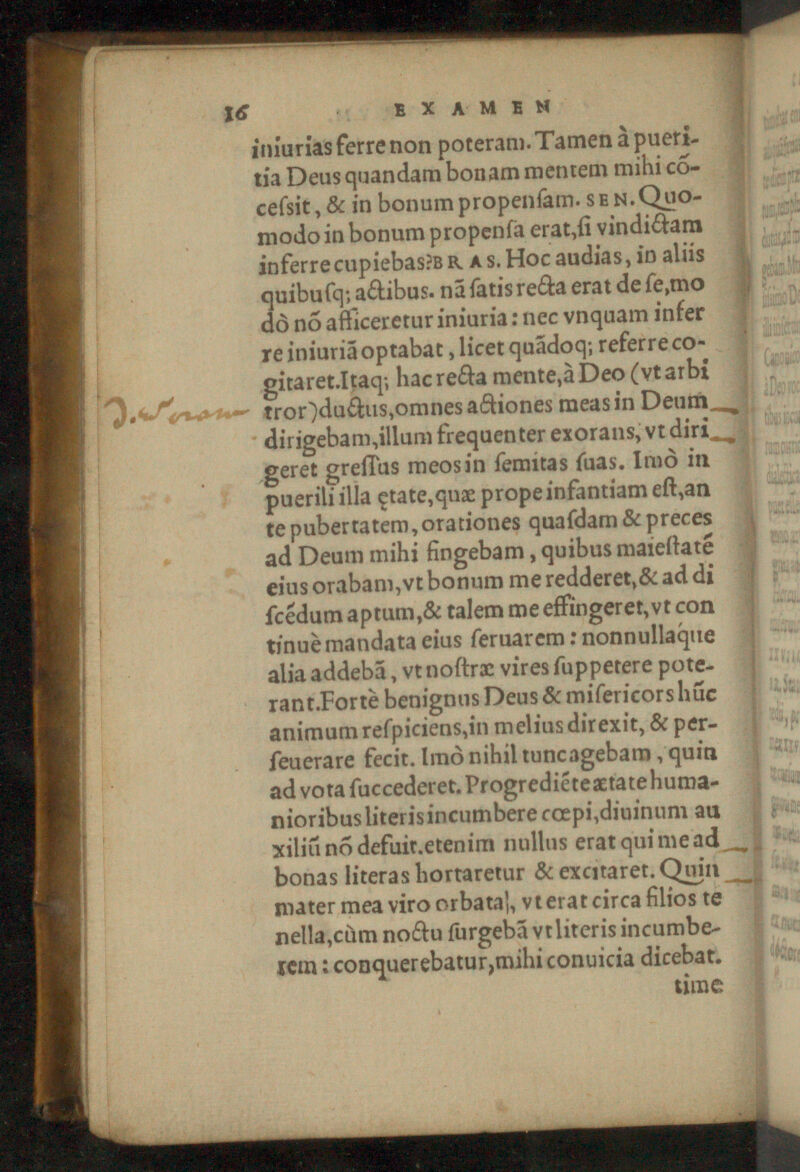 16 EXAMEN
iniurias ferre non poteram. Tamen à pueri-
tia Deus quandam bonam mentem mihi cō-
cefsit, & in bonum propenſam. SEN. Quo-
modo in bonum propenſa erat, ſi vindictam
inferre cupiebas? BRAS. Hoc audias, in aliis
quibuſq; actibus. nā ſatis recta erat de ſe, mo
dò nō afficeretur iniuria: nec vnquam infer
re iniuriā optabat, licet quādoq; referre co-
gitaret. Itaq; hac recta mente, à Deo (vt arbi
tror) ductus, omnes actiones meas in Deum
dirigebam, illum frequenter exorans, vt diri
geret greſſus meos in ſemitas ſuas. Imò in
puerili illa ętate, quæ prope infantiam eſt, an
te pubertatem, orationes quaſdam & preces
ad Deum mihi fingebam, quibus maieſtatē
eius orabam, vt bonum me redderet, & ad di
ſcēdum aptum, & talem me effingeret, vt con
tinuè mandata eius ſeruarem: nonnullaque
alia addebā, vt noſtræ vires ſuppetere pote-
rant. Fortè benignus Deus & miſericors hūc
animum reſpiciens, in melius direxit, & per-
ſeuerare fecit. Imò nihil tunc agebam, quin
ad vota ſuccederet. Progrediēte ætate huma-
nioribus literis incumbere cœpi, diuinum au
xiliū nō defuit. etenim nullus erat qui me ad
bonas literas hortaretur & excitaret. Quin
mater mea viro orbata), vt erat circa filios te
nella, cùm noctu ſurgebā vt literis incumbe-
rem: conquerebatur, mihi conuicia dicebat.
time